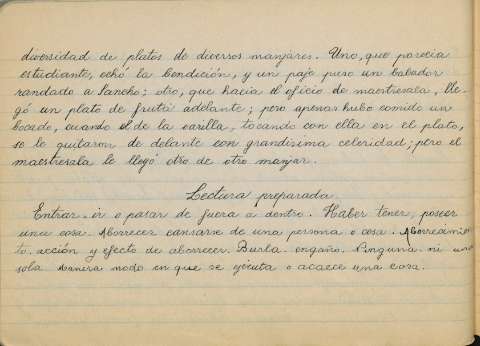 diversidad de platos de diversos manjares. Uno, que parecía
estudiante, echó la bendición, y un paje puso un babador
randado a Sancho; otro, que hacía el oficio de maestresala, lle-
gó un plato de fruta delante; pero apenas hubo comido un
bocado, cuando el de la varilla, tocando con ella en el plato,
se le quitaron de delante con grandísima celeridad; pero el
maestresala le llegó otro de otro manjar.
Lectura preparada
Entrar. ir o pasar de fuera a dentro. Haber tener, poseer
una cosa. Aborrecer cansarse de una persona o cosa. Aborrecimien
to. acción y efecto de aborrecer. Burla engaño. Ninguna. ni una
sola Manera modo en que se ejecuta o acaece una cosa.